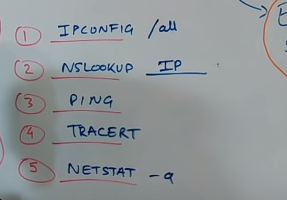 1 IPCONFIG /all
2 NSLOOKUP IP
3 PING
4 TRACERT
5 NETSTAT -a